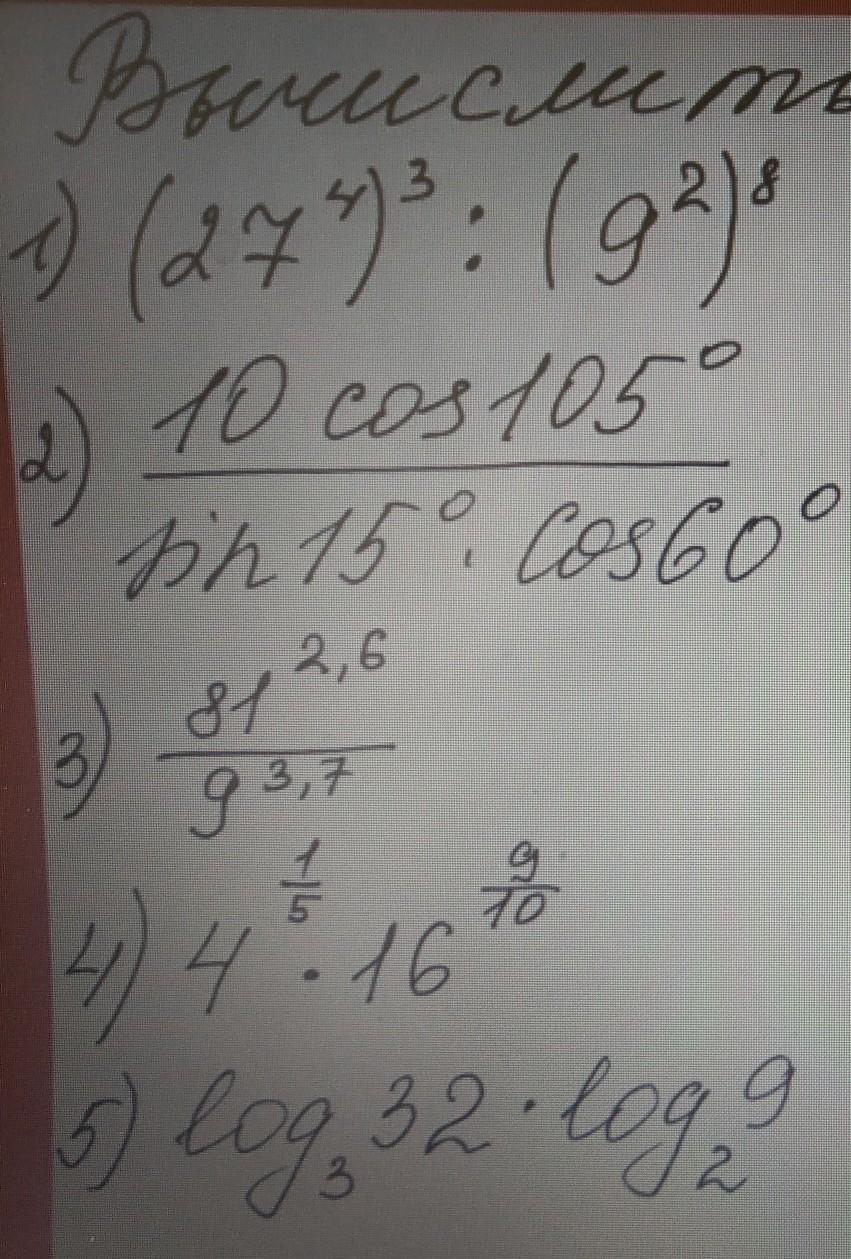 Вычислить
1) (27⁴)³ : (9²)⁸
2) 10 cos 105° / sin 15° · cos 60°
3) 81^2,6 / 9^3,7
4) 4^(1/5) · 16^(9/10)
5) log₃ 32 · log₂ 9